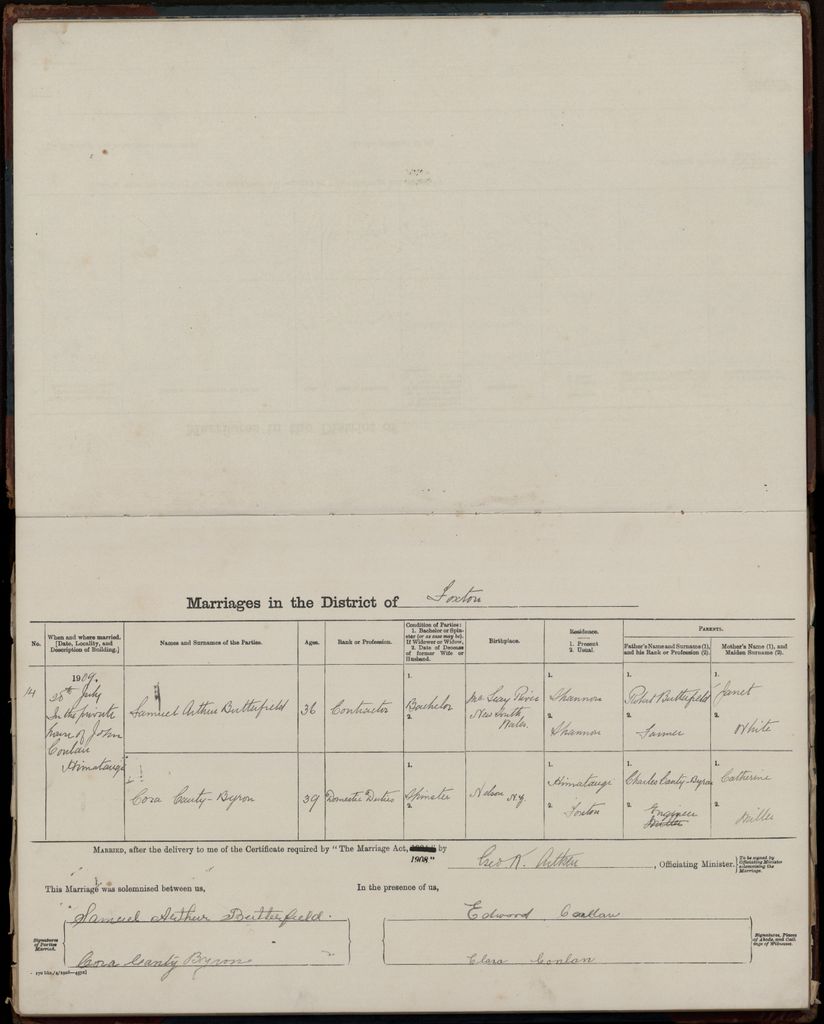 Marriages in the District of Foxton
No.
When and where married. [Date, Locality, and Description of Building.]
Names and Surnames of the Parties.
Ages.
Rank or Profession.
Condition of Parties: 1. Bachelor or Spinster (or as case may be). If Widower or Widow, 2. Date of Decease of former Wife or Husband.
Birthplace.
Residence. 1. Present 2. Usual.
PARENTS.
Father's Name and Surname (1), and his Rank or Profession (2).
Mother's Name (1), and Maiden Surname (2).
14
1909.
20th July
In the private
house of John
Conlan
Himatangi
Samuel Arthur Butterfield
36
Contractor
1.
Bachelor
2.
McLeay River
New South
Wales.
1.
Shannon
2.
Shannon
1.
Robert Butterfield
2.
Farmer
1.
Janet
2.
White
Cora Canty-Byron
39
Domestic Duties
1.
Spinster
2.
Nelson N.Z.
1.
Himatangi
2.
Foxton
1.
Charles Canty-Byron
2.
Engineer
Miller
1.
Catherine
2.
Miller
MARRIED, after the delivery to me of the Certificate required by "The Marriage Act, 1908" by Geo K. Aitken, Officiating Minister. [To be signed by Officiating Minister solemnising the Marriage.
This Marriage was solemnised between us,
In the presence of us,
Signatures of Parties Married.
Samuel Arthur Butterfield.
Cora Canty Byron
Edward Conlan
Clara Conlan
Signatures, Places of Abode, and Callings of Witnesses.